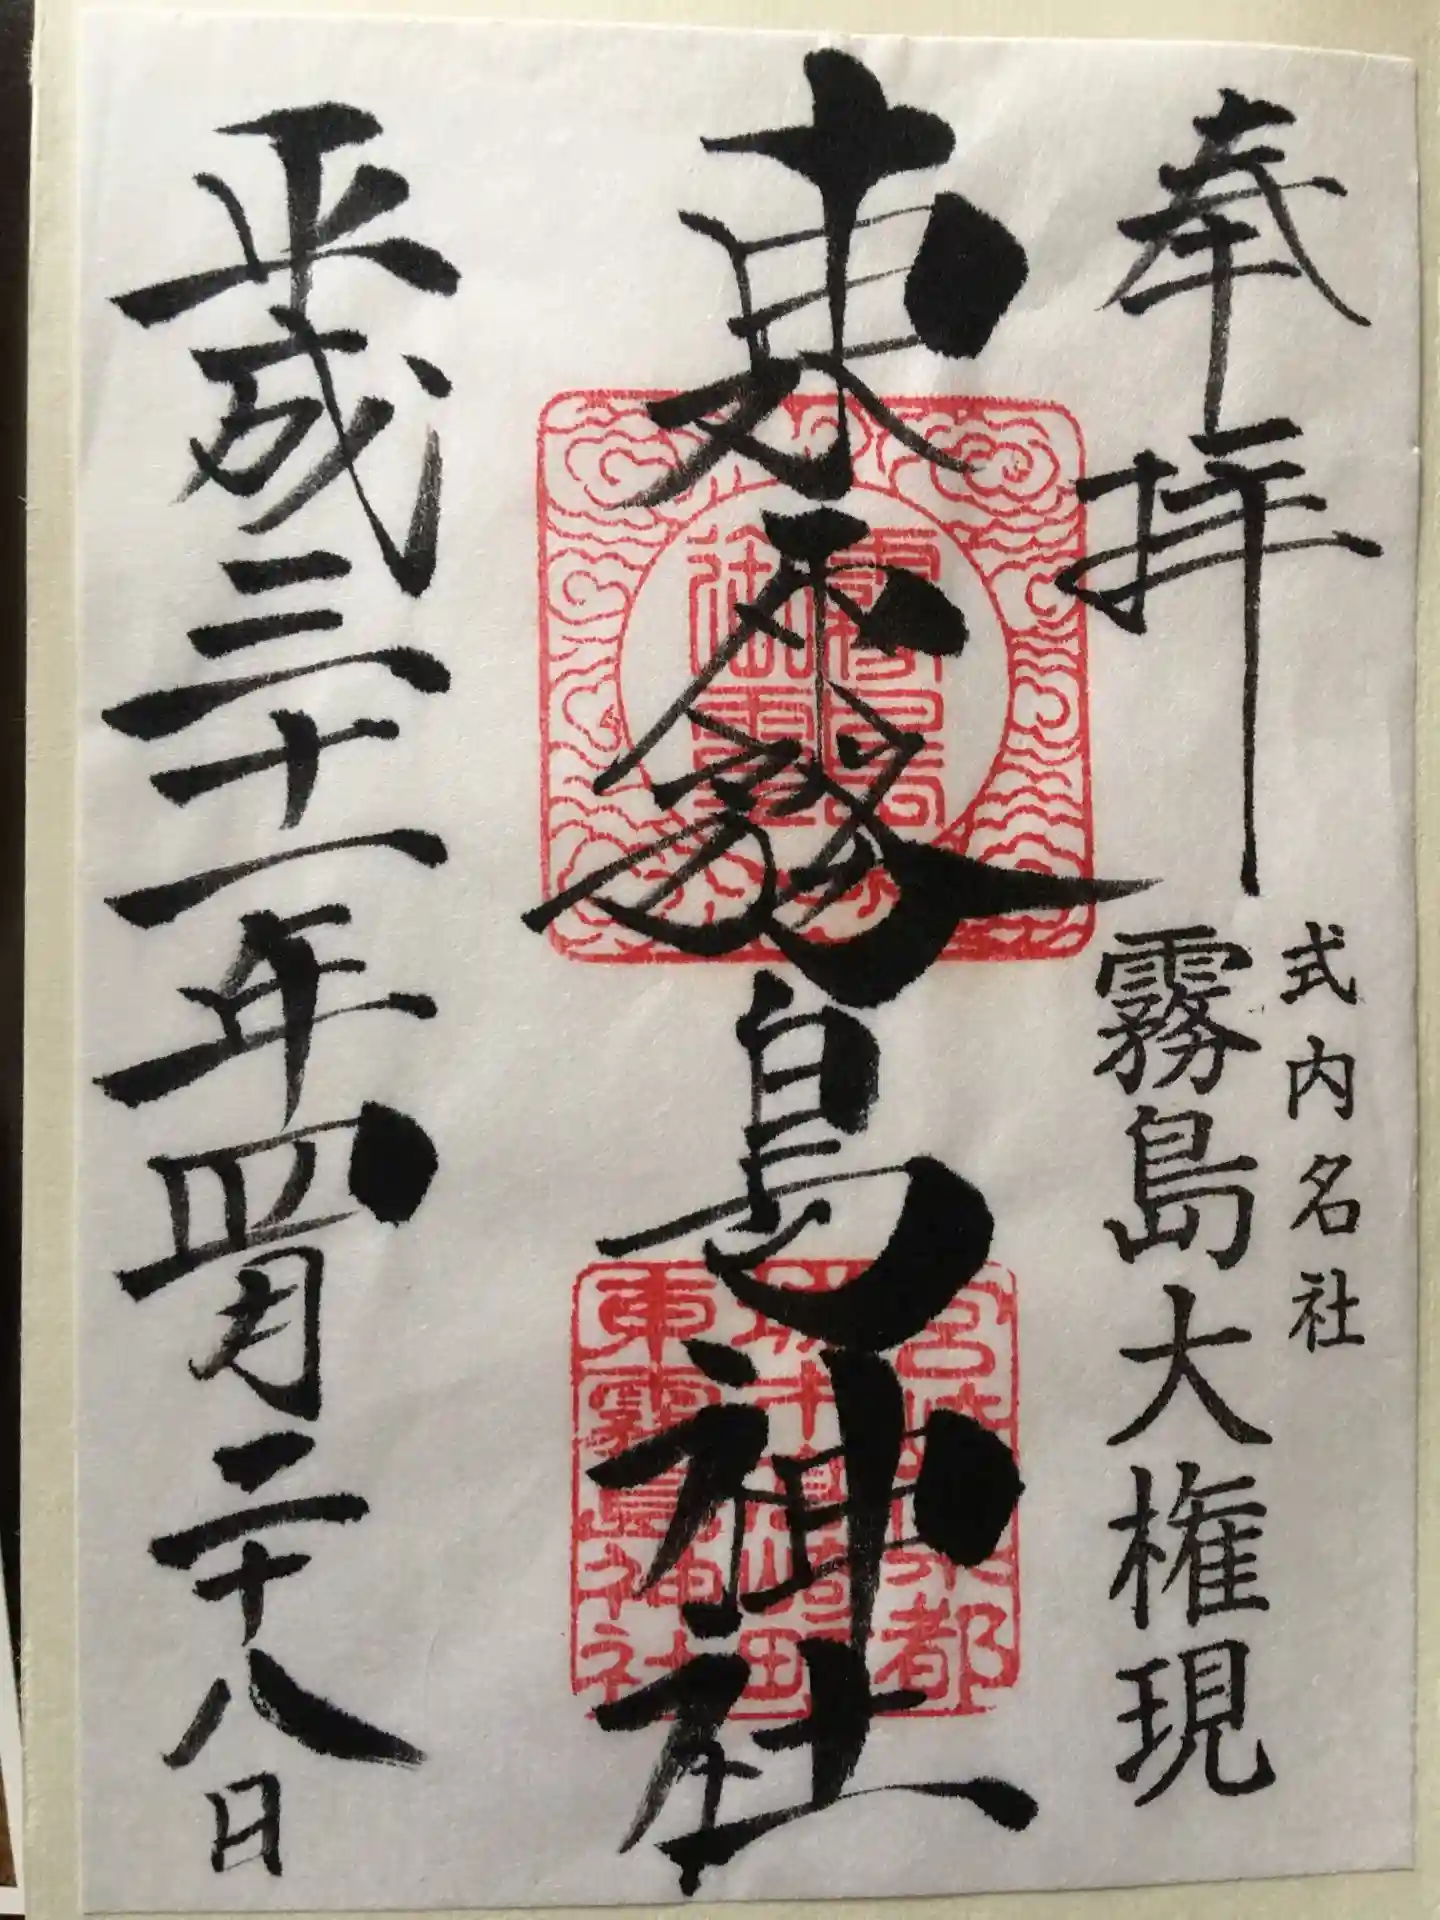 奉拝
式内名社
霧島大権現
東霧島神社
平成三十一年四月二十八日
東霧島神社